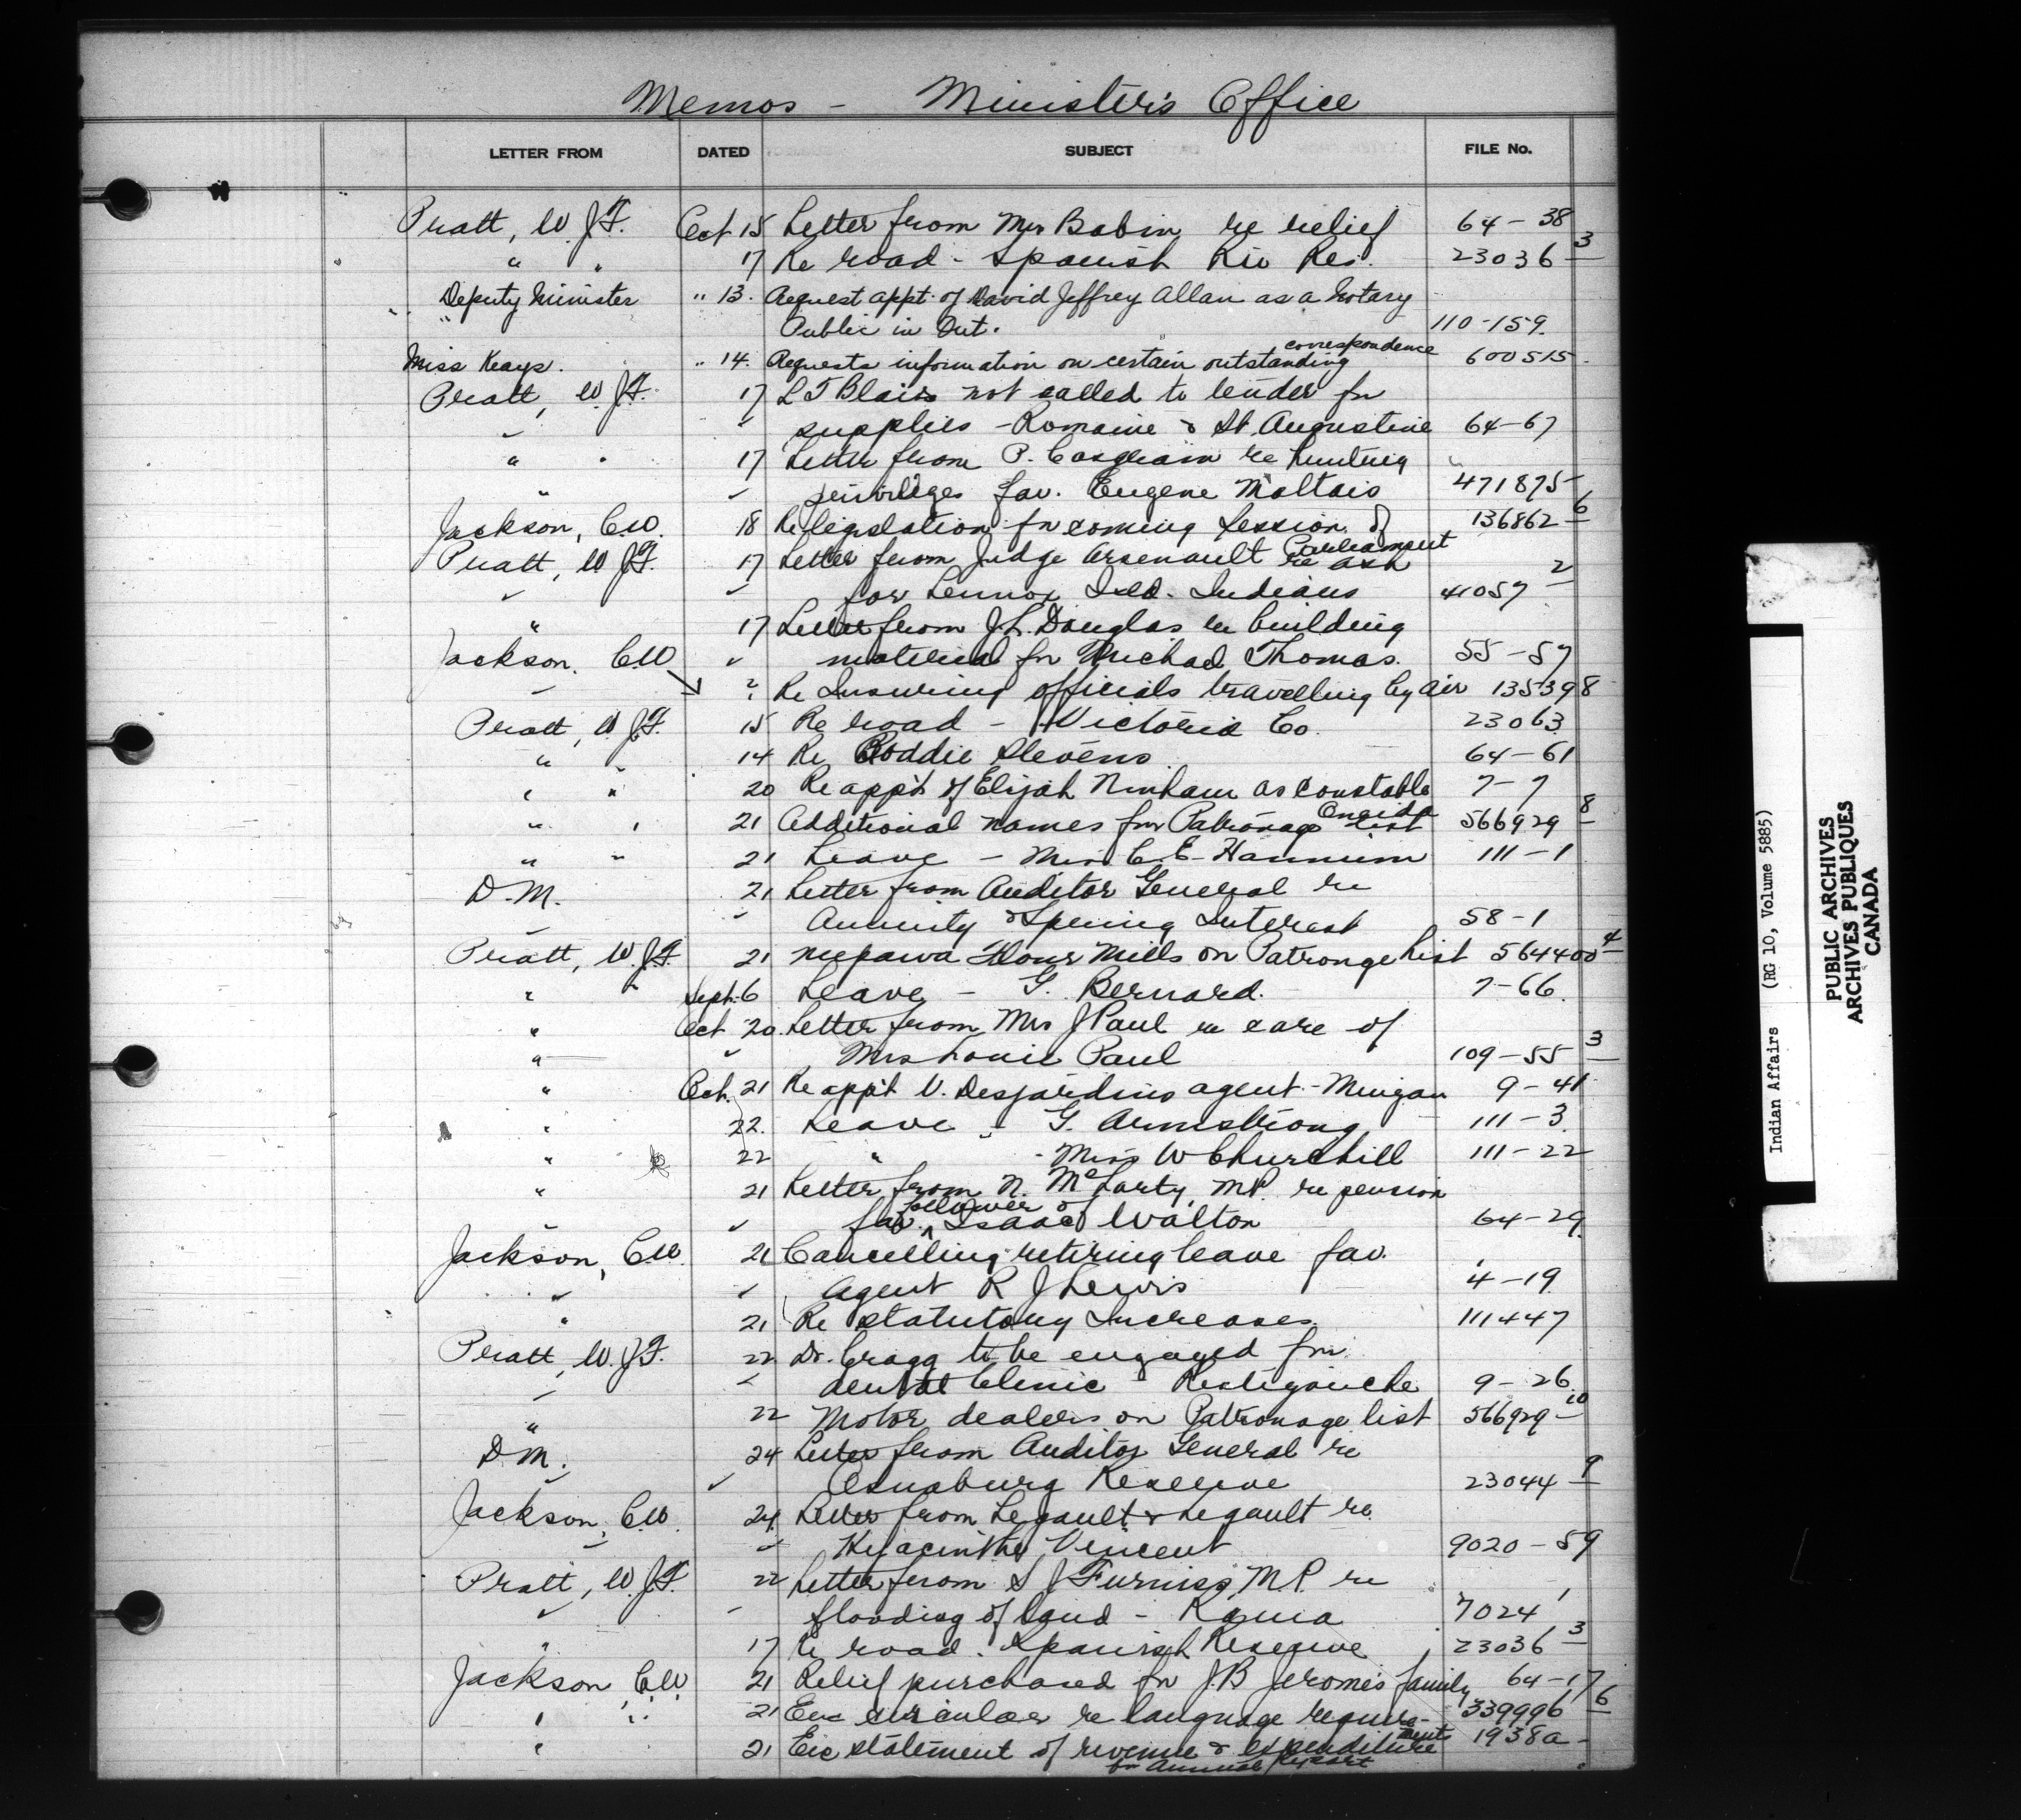 Memos - Minister's Office
LETTER FROM DATED SUBJECT FILE No.
Pratt, W. J. F. Oct 15 Letter from Mrs Babin re relief 64-38
" " 17 Re road - Spanish Riv Res. 23036-3
Deputy Minister " 13. Request appt. of David Jeffrey Allan as a Notary
" Public in Ont. 110-159.
Miss Keays. " 14. Requests information on certain outstanding correspondence 600515.
Pratt, W. J. F. 17 L T Blais not called to tender for
" " supplies - Romaine & St Augustine 64-67
" " 17 Letter from P. Casgrain re hunting
" " privileges fav. Eugene Maltais 471875
Jackson, C.W. 18 Re legislation for coming Session of Parliament 136862-6
Pratt, W J F. 17 Letter from Judge Arsenault re ash
" " for Lennox Isld. Indians 41057-2
" 17 Letter from J. L. Douglas re building
Jackson. C.W " material for Michael Thomas. 55-57
" ? Re Insuring officials travelling by air 135398
Pratt, W J F. 15 Re road - Victoria Co. 23063
" " 14 Re Roddie Stevens 64-61
" " 20 Re app't of Elijah Ninham as Constable Oneida 7-7
" " 21 Additional names for Patronage List 566929-8
" " 21 Leave - Miss C. E. Hannum 111-1
D. M. 21 Letter from Auditor General re
" " Annuity & Spring Interest 58-1
Pratt, W. J. F. 21 Neepawa Flour Mills on Patronge List 564400-4
" " Sept. 6 Leave - G. Bernard. 7-66.
" Oct 20. Letter from Mrs J Paul re care of
" " Mrs Louie Paul 109-55-3
" Oct. 21 Re app't V. Desjardins agent - Mingan 9-41
" 22. Leave - G. Armstrong 111-3
" 22 " - Miss W Churchill 111-22
" 21 Letter from N. McLarty, M.P. re pension
" " fav. Isaac Walton 64-29
Jackson, C.W. 21 Cancelling retiring leave fav.
" " Agent R J Lewis 4-19
" 21 Re Statutory Increases. 111447
Pratt, W. J. F. 22 Dr. Cragg to be engaged for
" " dental Clinic Restigouche 9-26
" 22 Motor dealers on Patronage list 566929-10
D M. 24 Letter from Auditor General re
" " Osnaburg Reserve 23044-9
Jackson, C.W. 24 Letter from Legault & Legault re
" " Hyacinthe Vincent 9020-59
Pratt, W. J. F. 22 Letter from S J Furniss, M.P. re
" " flooding of land - Rama 7024
" 17 Re road. Spanish Reserve 23036-3
Jackson, C.W. 21 Relief purchased for J. B Jerome's family 64-17
" " 21 Enc circular re language requirements 339996-6
" 21 Enc statement of revenue & expenditure for Annual Report 1938a-
Indian Affairs (RG 10, Volume 5885)
PUBLIC ARCHIVES
ARCHIVES PUBLIQUES
CANADA